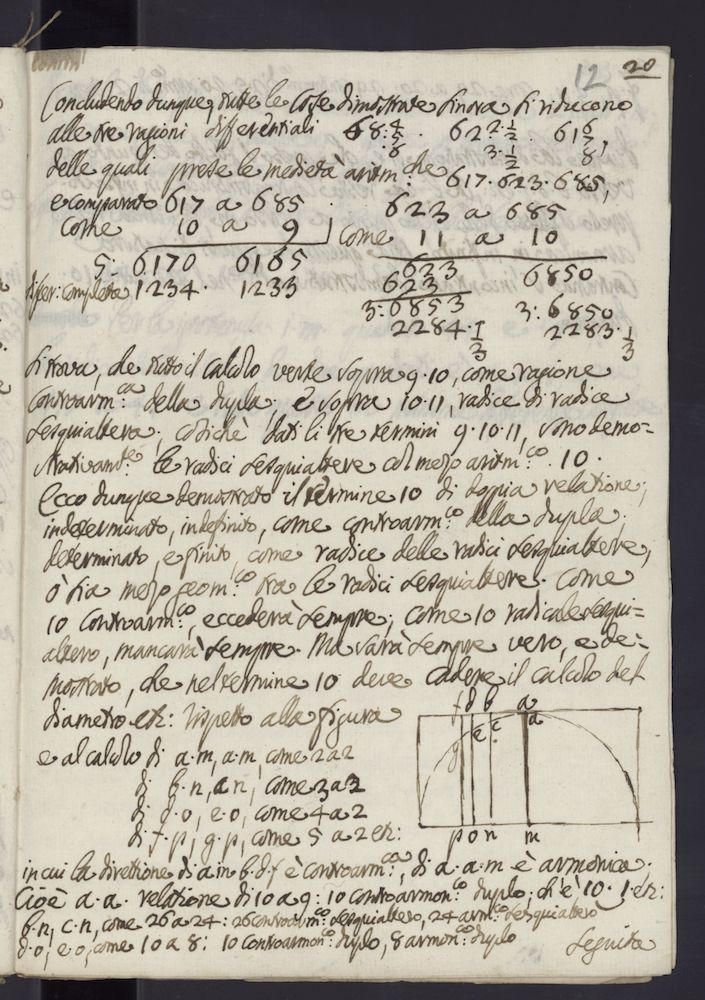 12 20
Concludendo dunque, tutte le cose dimostrate sinora si riducono
alle tre ragioni differentiali 68 4/8 . 62 2 1/2 / 3 1/2 . 61 6/8,
delle quali prese le medietà aritm:che 617. 623. 685,
e comparato 617 a 685 623 a 685
come 10 a 9 come 11 a 10
5. 6170 6165 623 6850
623
differ: completa 1234. 1233 3: 6853 3: 6850
2284. 1/3 2283. 1/3
si trova, che tutto il calcolo verte sopra 9. 10, come ragione
controarm:ca della dupla, e sopra 10. 11, radice di radice
sesquialtera; cosichè dati li tre termini 9. 10. 11, sono demo=
strativamte le radici sesquialtere col mezo aritm:co 10.
Ecco dunque demostrato il termine 10 di doppia relatione;
indeterminato, indefinito, come controarm:co della dupla;
determinato, e finito, come radice delle radici sesquialtere,
ò sia mezo geom:co tra le radici sesquialtere. Come
10 controarm:co, eccederà sempre; come 10 radicale sesqui=
altero, mancarà sempre. Ma sarà sempre vero, e de=
mostrato, che nel termine 10 deve cadere il calcolo del
diametro etc: rispetto alla figura
e al calcolo di a.m, a.m, come 2 a 2
di b.n, c.n, come 3 a 2
di d.o, e.o, come 4 a 2
di f.p, g.p, come 5 a 2 etc:
f d b a
g e c a
p o n m
in cui la direttione di a in b.d.f è controarm:ca, di a.a.m è armonica.
Cioè a.a. relatione di 10 a 9: 10 controarmon:co duplo, ch'è 10. 1 etc:
b.n, c.n, come 26 a 24: 26 controarm:co sesquialtero, 24 arm:co sesquialtero
d.o, e.o, come 10 a 8: 10 controarmon:co duplo, 8 armon:co duplo Seguita